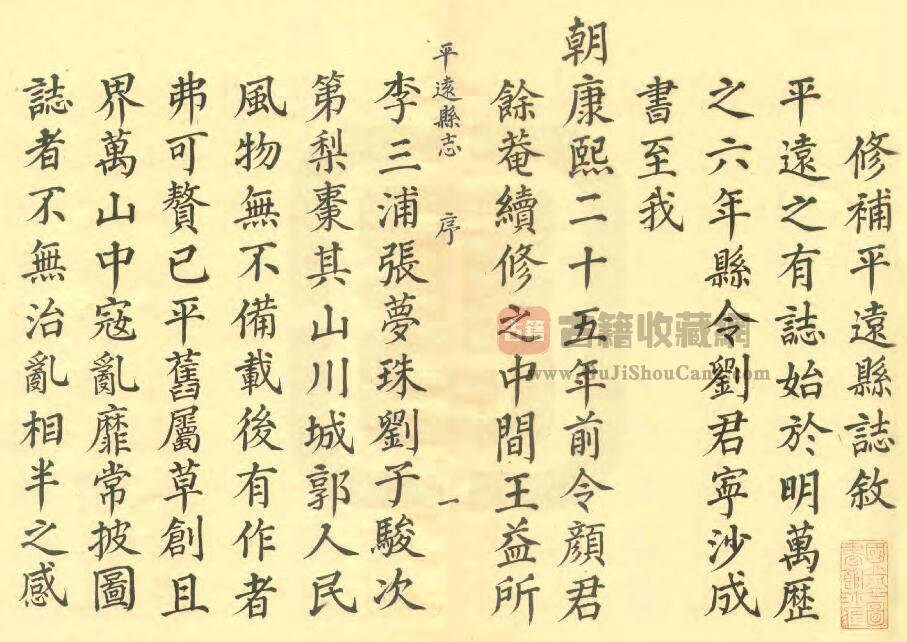 修補平遠縣誌敘
平遠之有誌始於明萬歷
之六年縣令劉君寧沙成
書至我
朝康熙二十五年前令顏君
餘菴續修之中間王益所
平遠縣志 序 一
李三浦張夢珠劉子駿次
第梨棗其山川城郭人民
風物無不備載後有作者
弗可贅已平舊屬草創且
界萬山中寇亂靡常披圖
誌者不無治亂相半之感
古籍 古籍收藏網
www.GuJiShouCang.com